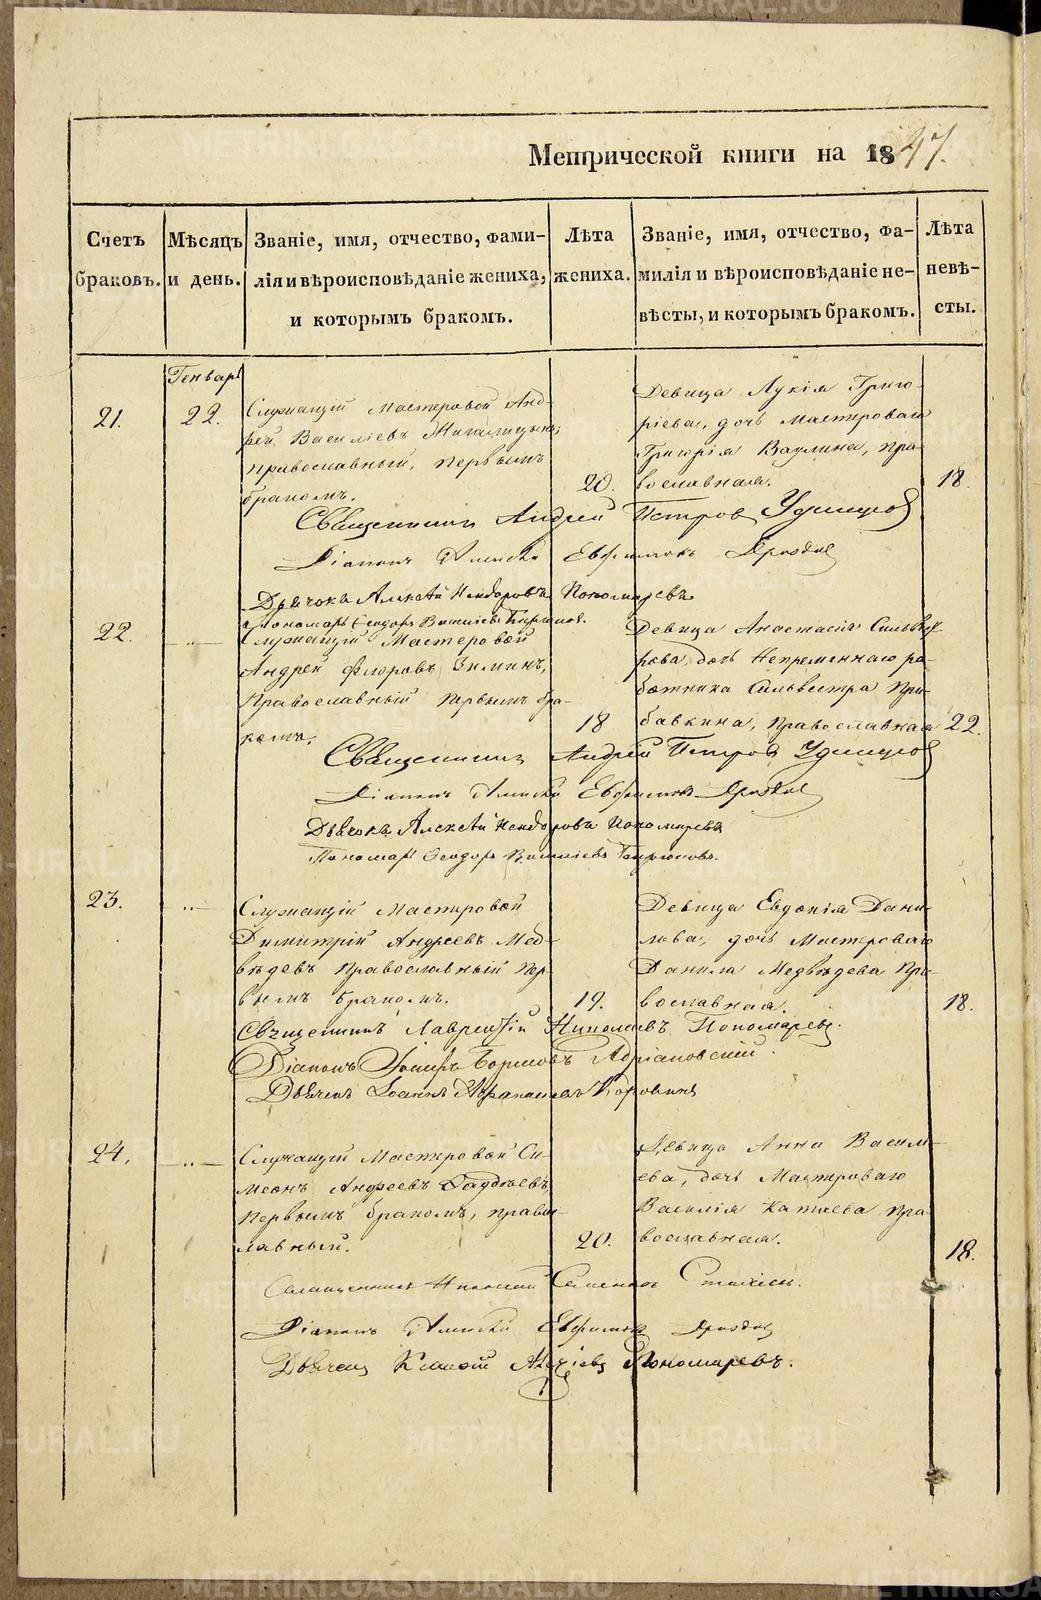 Метрической книги на 1847.
Счетъ браковъ.
Мѣсяцъ и день.
Званіе, имя, отчество, фами-
лія и вѣроисповѣданіе жениха,
и которымъ бракомъ.
Лѣта жениха.
Званіе, имя, отчество, фа-
милія и вѣроисповѣданіе не-
вѣсты, и которымъ бракомъ.
Лѣта невѣ-
сты.
Генварь
21.
22.
Служащій Мастеровой Анд-
рей Василіевъ
православный, первымъ
бракомъ.
20.
Девица Лукія Григо-
ріева, дочь Мастероваго
Григорія Ваулина, пра-
вославная.
18.
Священникъ Андрей Петровъ Удинцовъ
Діаконъ Алексій Евфимовъ Дроздов
Дьячокъ Алексѣй Никифоровъ Пономаревъ
Пономарь Ѳеодоръ Василіевъ
22.
Служащій Мастеровой
Андрей Флоровъ Зиминъ,
Православный Первымъ бра-
комъ.
18
Девица Анастасія Сильвест-
рова, дочь Непременнаго ра-
ботника Сильвестра При-
бавкина, православная
22.
Священникъ Андрей Петров Удинцов
Діаконъ Алексій Евфимовъ Дроздов
Дьячокъ Алексѣй Никифоровъ Пономаревъ
Пономарь Ѳеодоръ Василіевъ
23.
Служащій Мастеровой
Димитрій Андреевъ Мед-
вѣдевъ Православный Пер-
вымъ бракомъ.
19.
Девица Евдокія Дани-
лова, дочь Мастероваго
Данила Медвѣдева Пра-
вославная.
18.
Священникъ Лаврентій Николаевъ Пономаревъ.
Діаконъ Іосифъ Борисовъ Адріановскій.
Дьячекъ Іоаннъ Афанасьевъ Коровинъ
24.
Служащій Мастеровой Си-
меонъ Андреевъ
Первымъ бракомъ, правос-
лавный.
20.
Девица Анна Василі-
ева, дочь Мастероваго
Василія Катаева пра-
вославная.
18.
Священникъ Николай Семеновъ
Діаконъ Алексій Евфимовъ Дроздов
Дьячекъ Пономаревъ.
METRIKI.GASO-URAL.RU